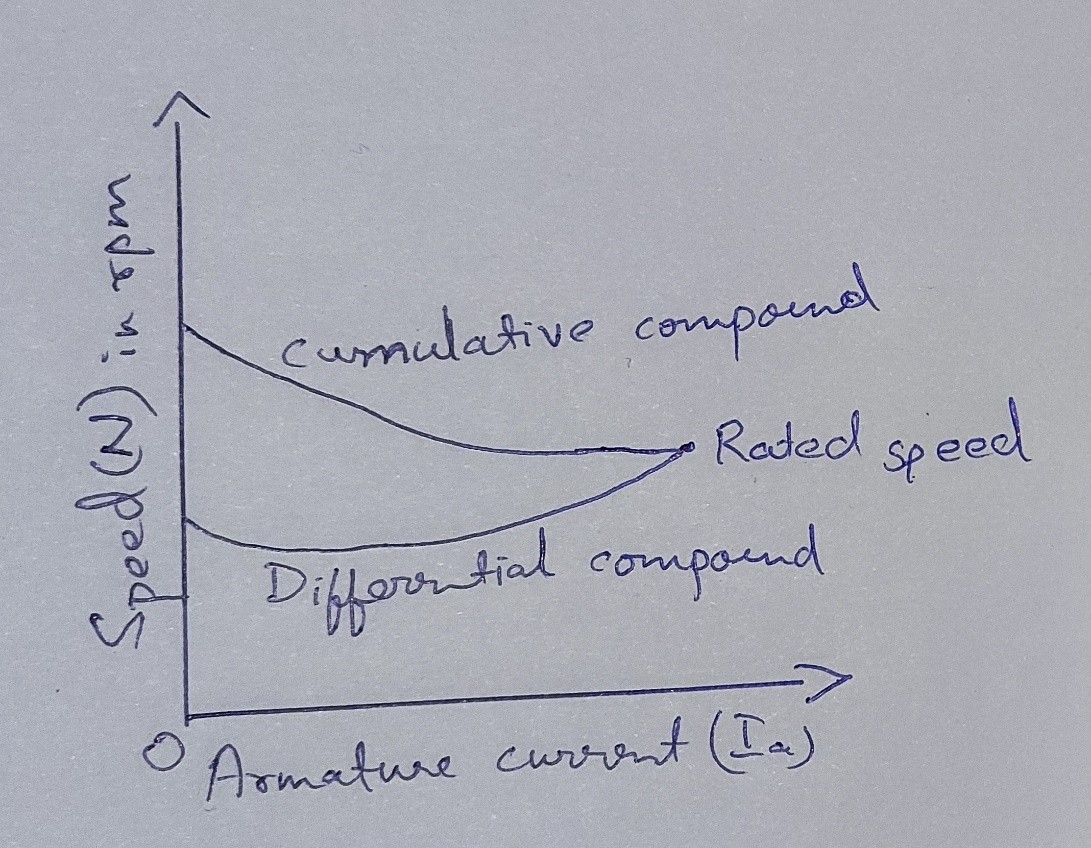 Speed (N) in rpm
Cumulative compound
Rated speed
Differential compound
O
Armature current (Ia)